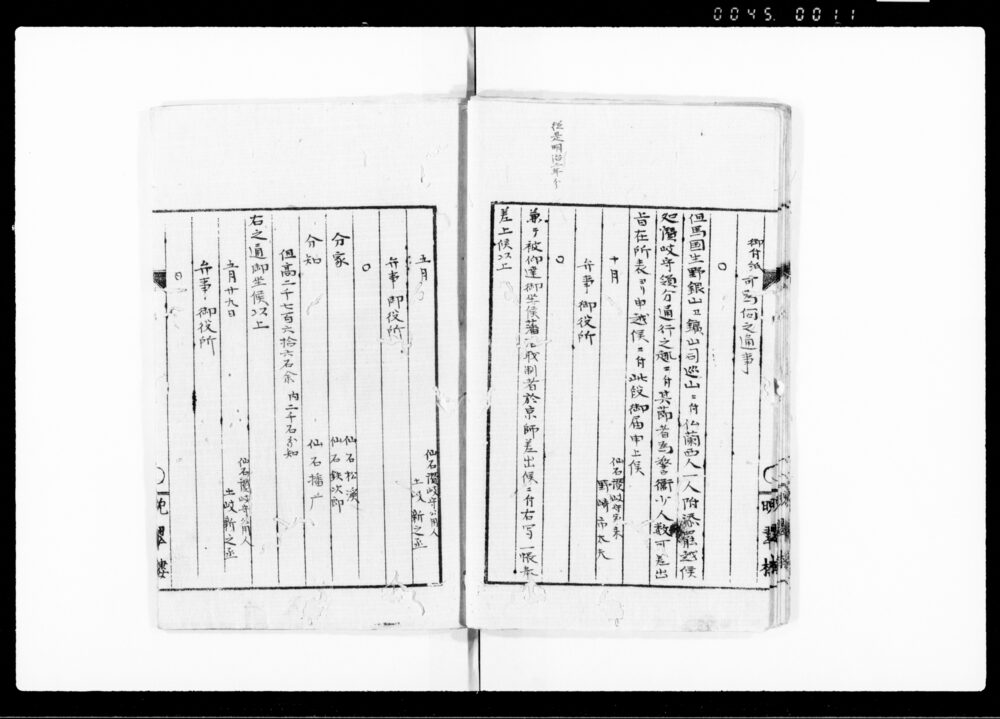 0045. 0011
従是明治二年分
御付紙 可為伺之通事
○
但馬国生野銀山ヱ鑛山司巡山ニ付仏蘭西人一人附添罷越候
処讃岐守領分通行之趣ニ付其節者為警衛少人数可差出
旨在所表ヨリ申越候ニ付此段御届申上候
十月
仙石讃岐守家来
野崎市太夫
弁事 御役所
○
兼テ被仰達御坐候藩治職制者於京師差出候ニ付右写一帳
差上候以上
五月
仙石讃岐守公用人
土岐新之丞
弁事 御役所
○
分家
仙石松
仙石鉄次郎
分知 仙石播广
但高二千七百六拾六石余 内二千石分知
右之通御坐候以上
五月廿九日
仙石讃岐守公用人
土岐新之丞
弁事 御役所